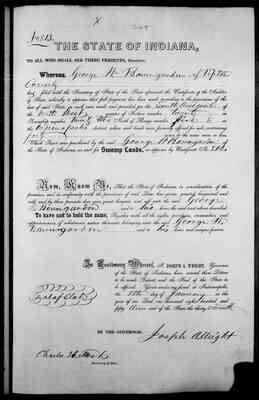 No. 813.
THE STATE OF INDIANA,
TO ALL WHO SHALL SEE THESE PRESENTS, GREETING:
Whereas, George W. Baumgardner of
County
has filed with the Secretary of State of the State aforesaid the Certificate of the Auditor of
State, whereby it appears that full payment has been made according to the provisions of the
law of said State in such case made and provided for the South East quarter of
the North West quarter of Section number Twenty
Township number Twenty five of Range number
the district of lands
acres
which Tract was purchased by the said George W. Baumgardner of
the State of Indiana as and for Swamp Lands, as appears by Certificate No.
Now, Know Ye, That the State of Indiana in consideration of the
premises, and in conformity with the provisions of said Law, has given, granted, bargained and
sold, and by these presents does give, grant, bargain and sell unto the said George W.
Baumgardner and to his heirs, the said tract above described,
To have and to hold the same, Together with all the rights, privileges, immunities and
appurtenances of whatsoever nature thereunto belonging, unto the said George W.
Baumgardner and to his heirs and assigns forever.
In Testimony Whereof, I, JOSEPH A. WRIGHT, Governor
of the State of Indiana, have caused these Letters
to be made Patent, and the Seal of the State to
be affixed. Given under my hand at Indianapolis,
the day of January in the
year of our Lord one thousand eight hundred and
fifty and of the State the thirty
Seal of State
BY THE GOVERNOR:
Joseph A Wright
Charles H.
Secretary of State.